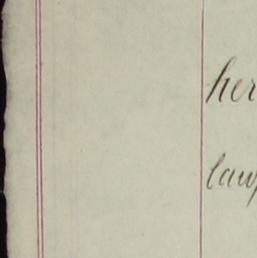 her
law